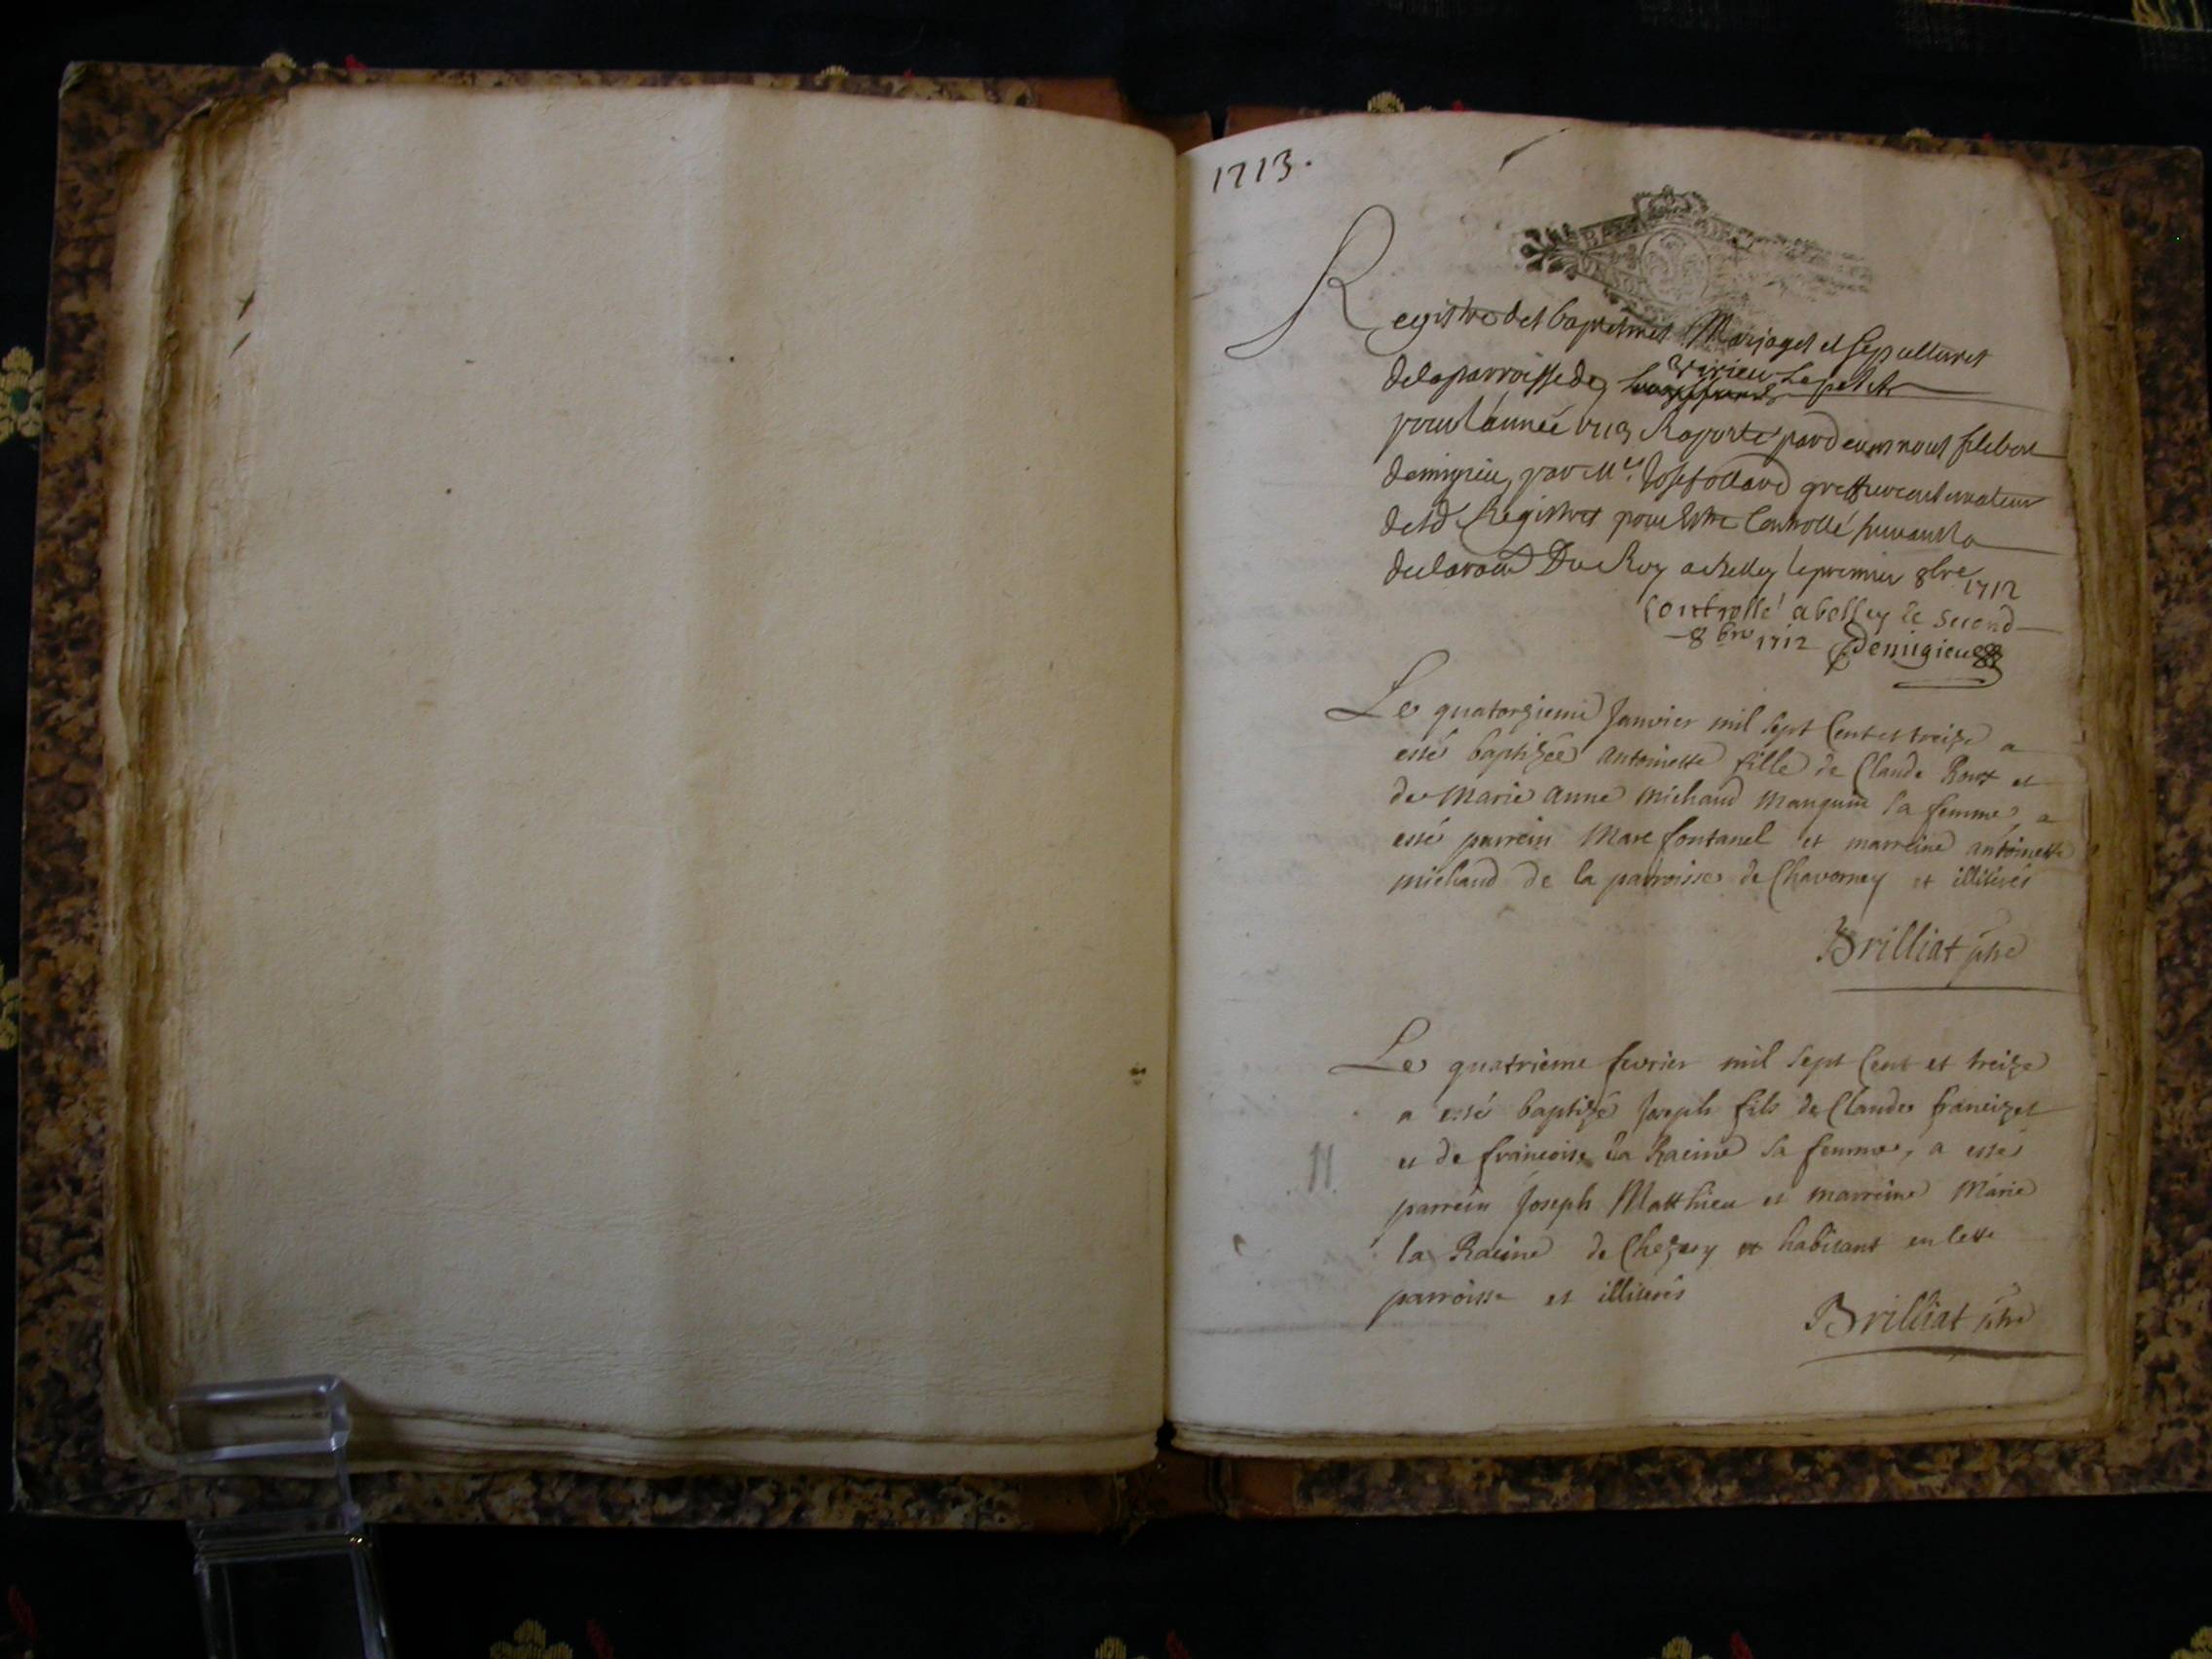 1713.
Registre des baptesmes Mariages et sepultures
de la parroisse de Virieu le petit
pour l'année 1713 Raporté par devant nous filebert
demigieu, par Mre. Josef ollard greffier conservateur
desd Registres pour Estre Controllé suivant la
declaraon Du Roy a Belley le premier 8bre 1712
Controllé a belley le second
8bre 1712 Demigieu
Le quatorzieme Janvier mil sept Cent et treize a
esté baptizée antoinette fille de Claude Roux et
de Marie anne michaud sa femme, a
esté parrein Marc fontanel et marreine antoinette
michaud de la parroisse de Chavornay et illiterés
Brilliat ptre
Le quatrieme fevrier mil sept Cent et treize
a esté baptizé Joseph fils de Claude francizet
et de francoise la Racine sa femme, a esté
parrein Joseph Matthieu et marreine Marie
la Racine de Chezery et habitant en cette
parroisse et illiterés
Brilliat ptre